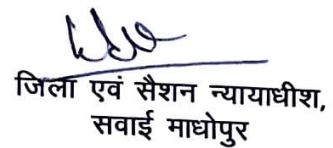 जिला एवं सैशन न्यायाधीश,
सवाई माधोपुर